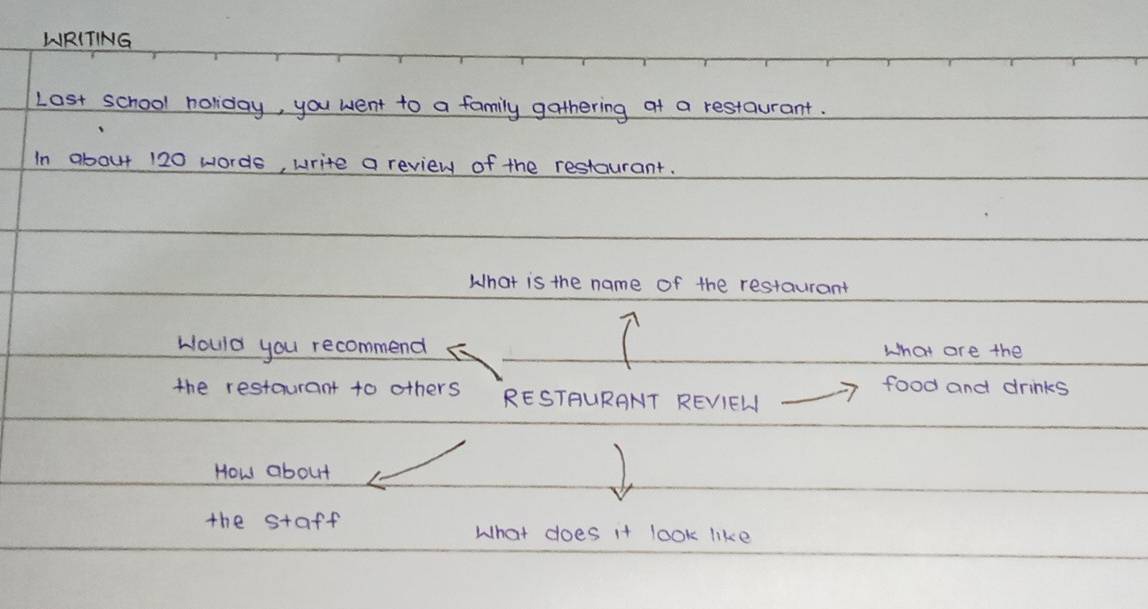 WRITING
Last school holiday, you went to a family gathering at a restaurant.
In about 120 words, write a review of the restaurant.
What is the name of the restaurant
Would you recommend
the restaurant to others
RESTAURANT REVIEW
What are the
food and drinks
How about
the staff
What does it look like